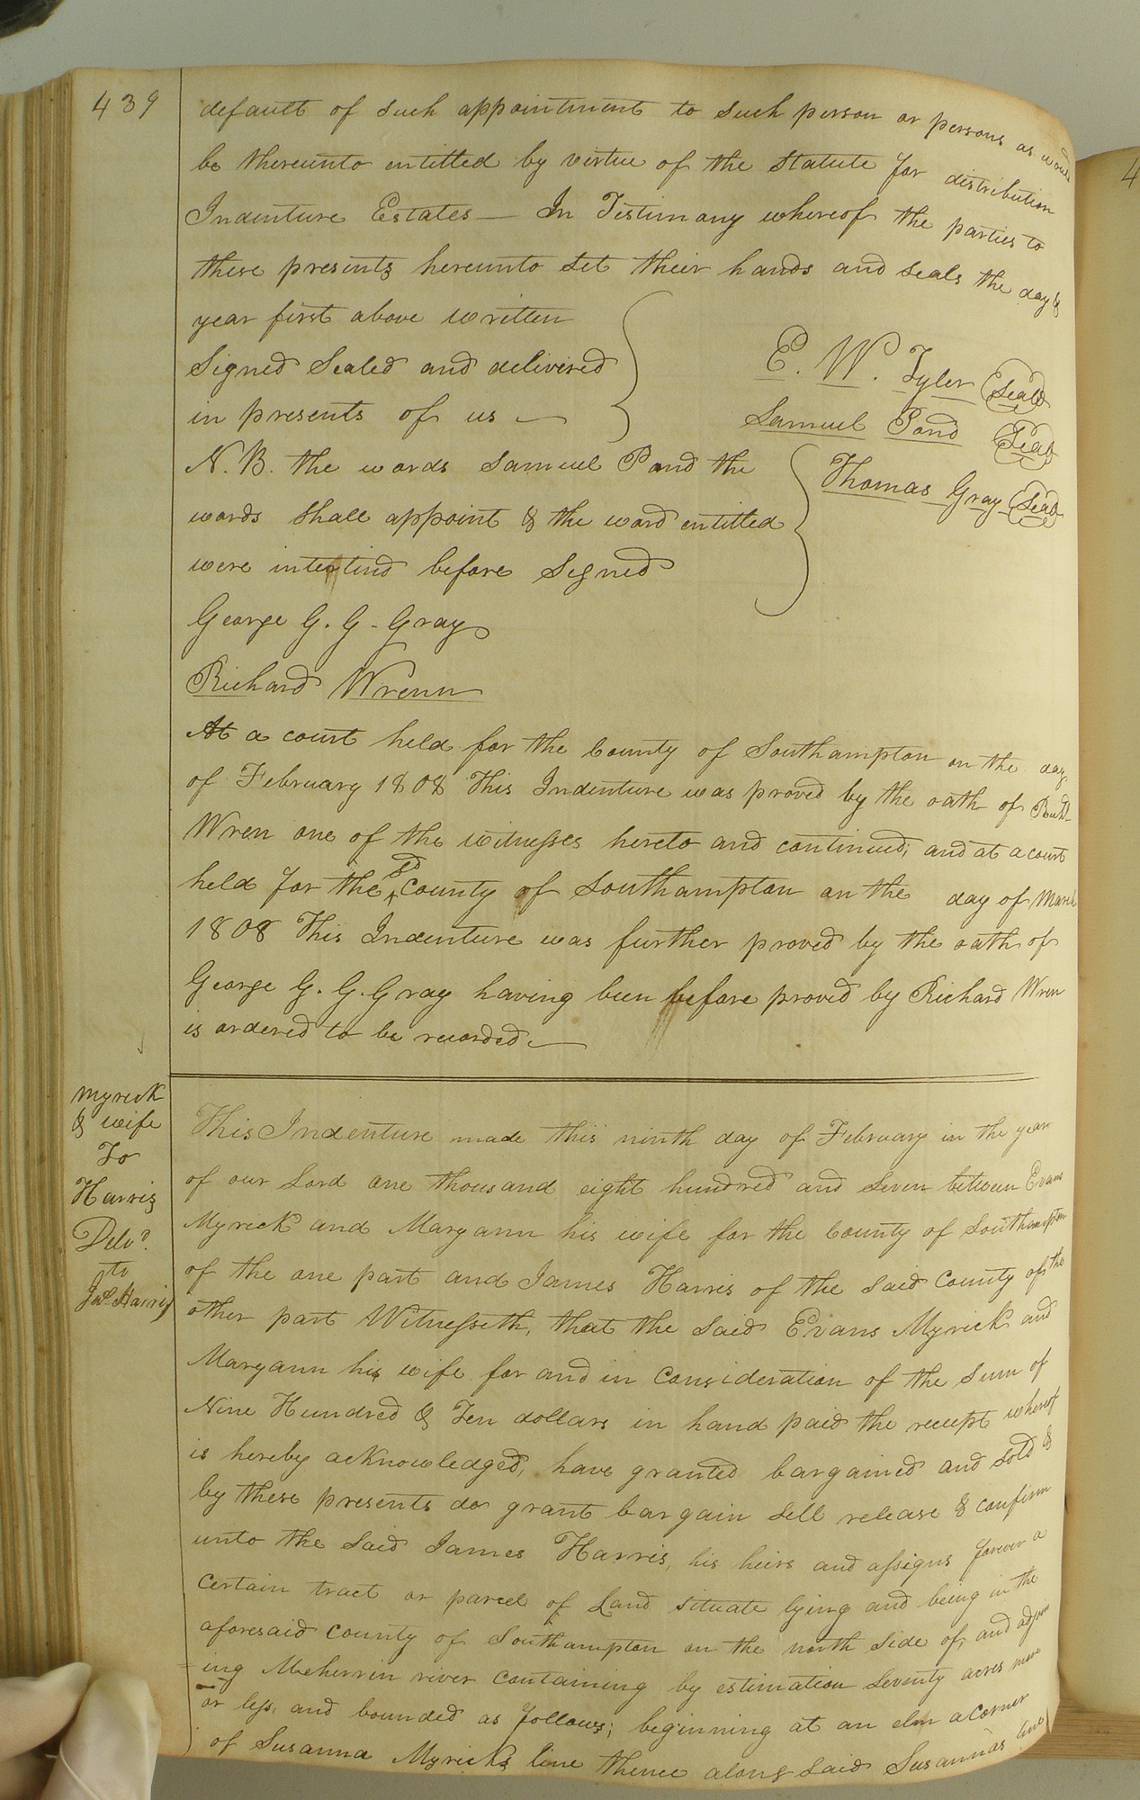 439
default of such appointment to such person or persons as would
be thereunto entitled by virtue of the Statute for distribution
Indenture Estates — In Testimony whereof the parties to
these presents hereunto set their hands and seals the day &
year first above written
Signed Sealed and delivered
in presents of us —
E. W. Tyler Seal
Samuel Pond Seal
Thomas Gray Seal
N. B. the words Samuel Pond the
words shall appoint & the word entitled
were interlind before Signed
George G. G. Gray
Richard Wrenn
At a court held for the County of Southampton on the day
of February 1808 This Indenture was proved by the oath of Richd
Wren one of the witnesses hereto and continued, and at a court
held for the sd County of Southampton on the day of March
1808 This Indenture was further proved by the oath of
George G. G. Gray having been before proved by Richard Wren
is ordered to be recorded —
Myrick
& wife
To
Harris
Delvd
to
Jas Harris
This Indenture made this ninth day of February in the year
of our Lord one thousand eight hundred and Seven between Evans
Myrick and Maryann his wife for the County of Southampton
of the one part and James Harris of the said County of the
other part Witnesseth, that the said Evans Myrick and
Maryann his wife for and in consideration of the sum of
Nine Hundred & Ten dollars in hand paid the receipt whereof
is hereby acknowledged, have granted bargained and sold &
by these presents do grant bargain sell release & confirm
unto the said James Harris, his heirs and assigns forever a
certain tract or parcel of Land situate lying and being in the
aforesaid county of Southampton on the north side of, and adjoin
ing Meherrin river containing by estimation seventy acres more
or less, and bounded as follows; beginning at an elm a corner
of Susanna Myricks line thence along said Susannas line